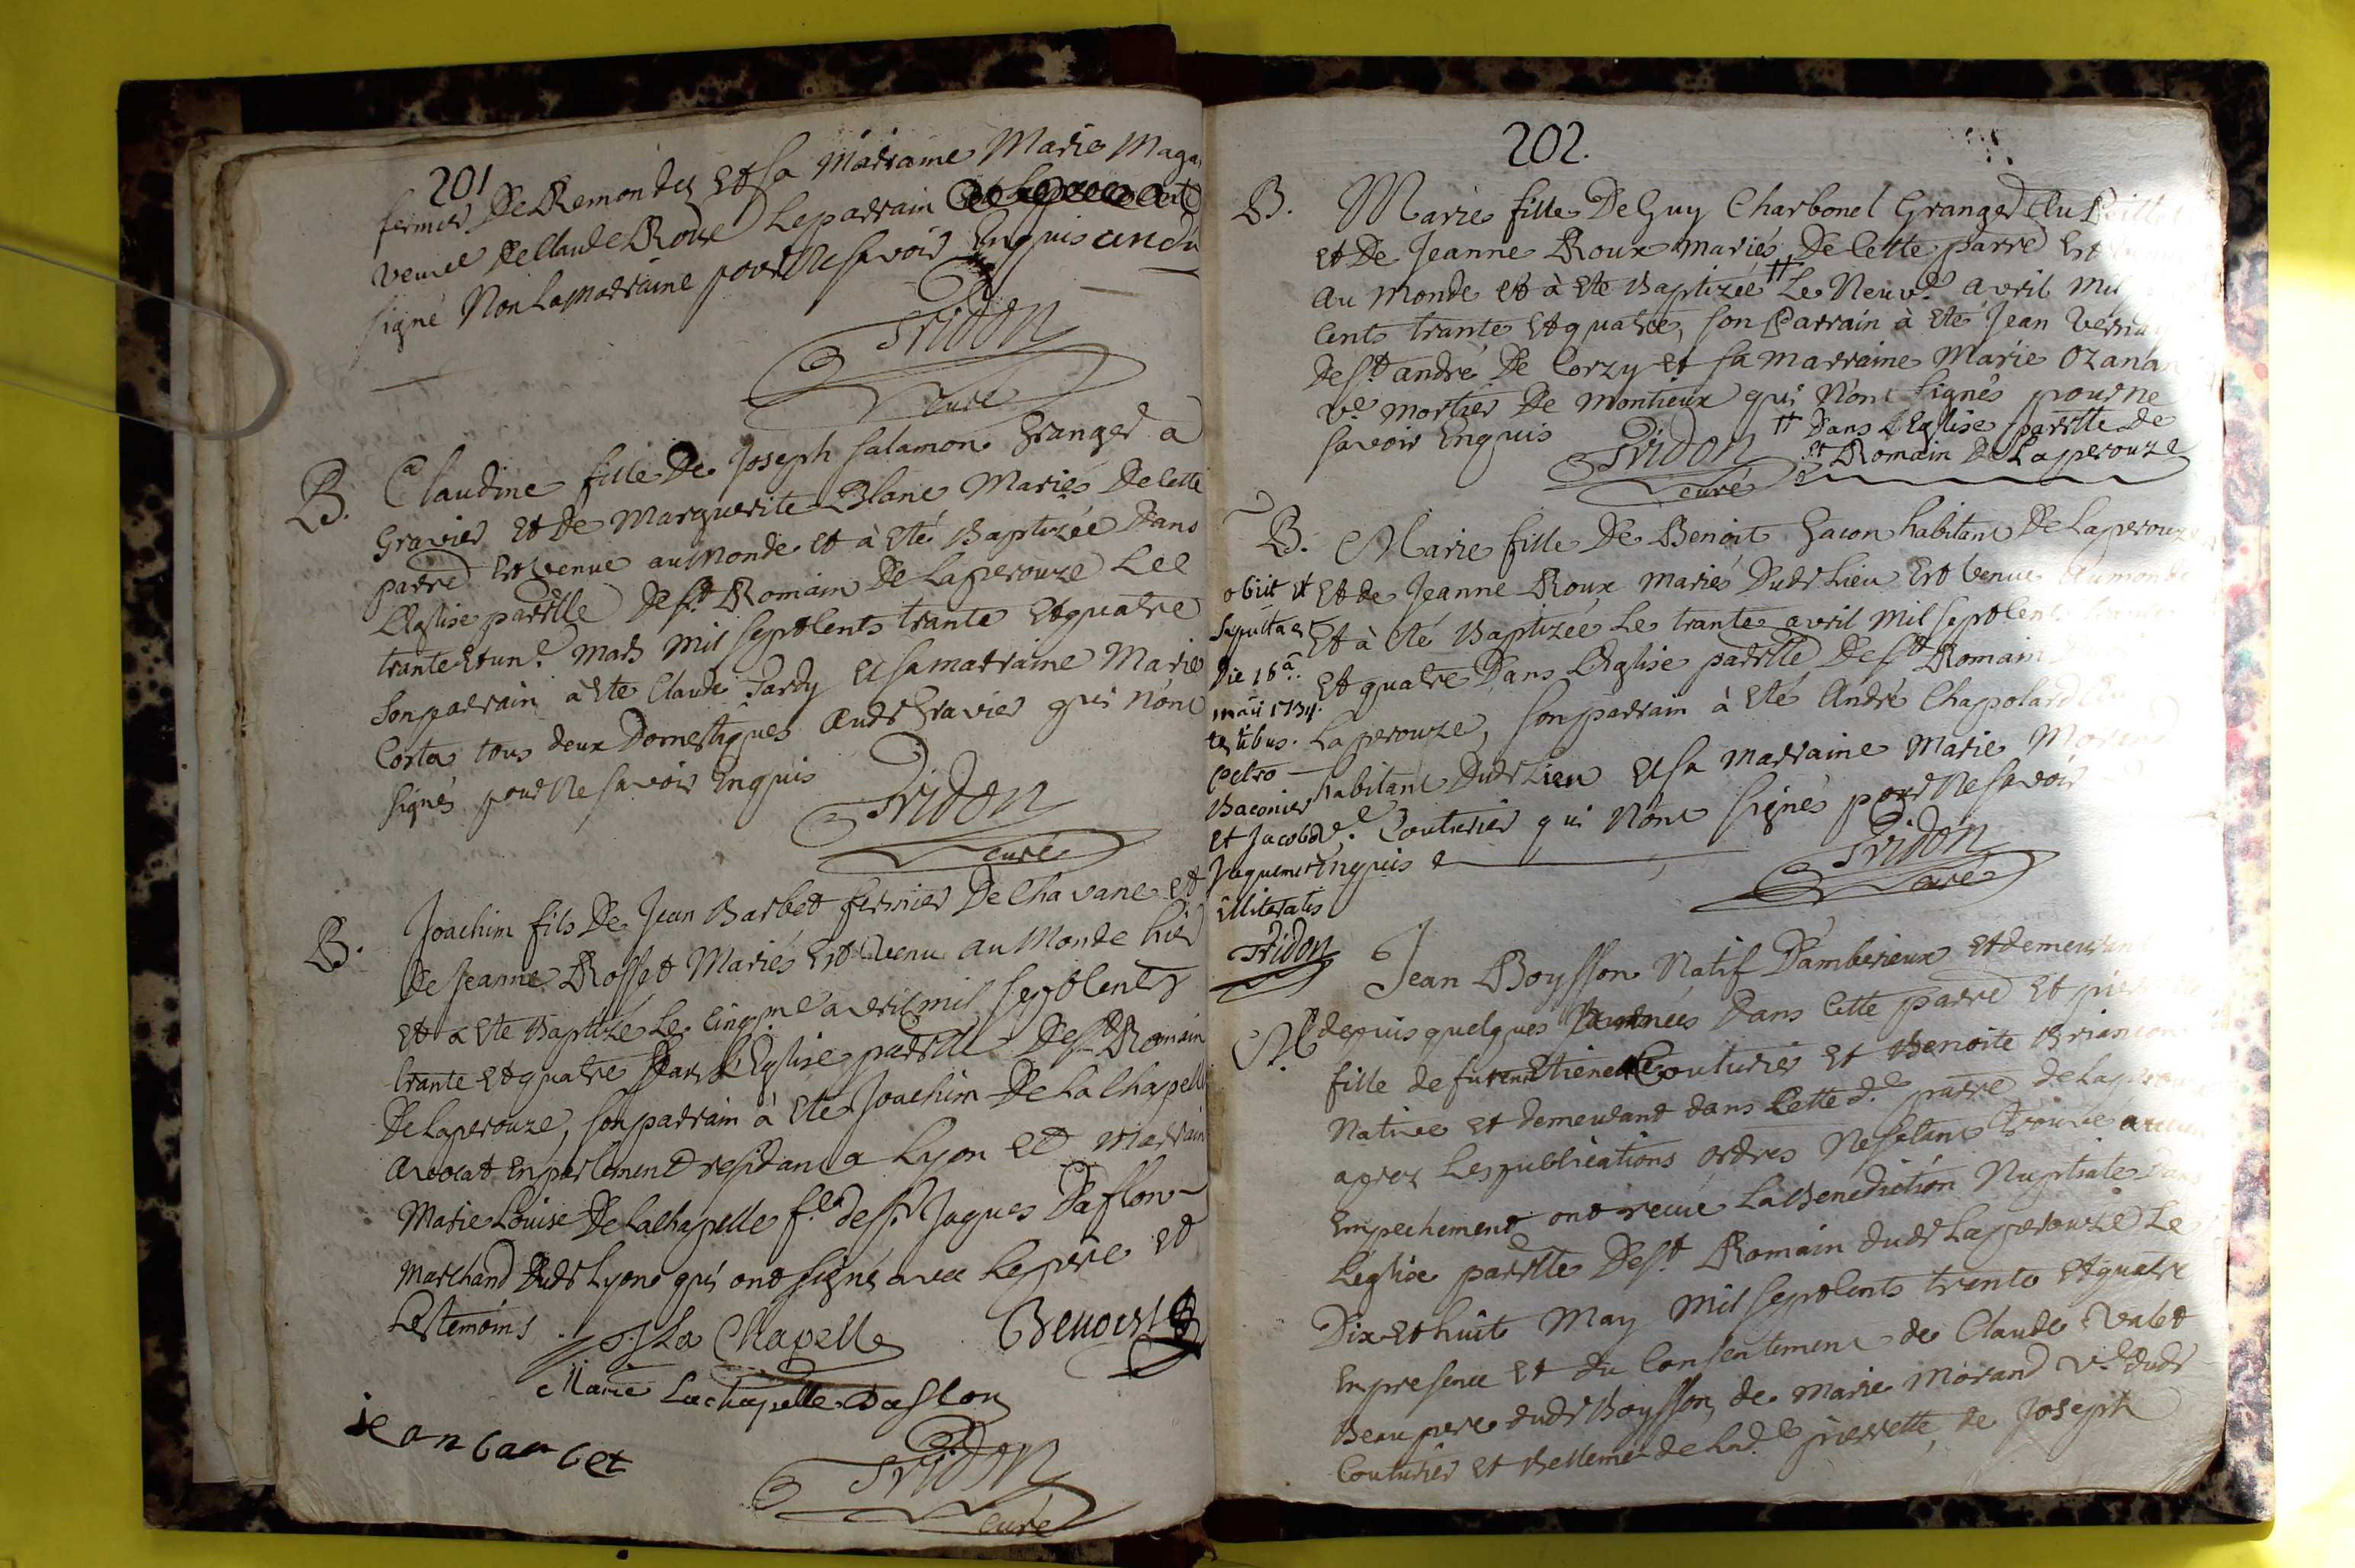 201
fermier De Remondez Et sa Marraine Marie Maga
veuve De Claude Roux Le parrain
signé Non La marraine pour Ne savoir Enquis
Tridon
curé
B. Claudine fille De Joseph Salamon Granger a
Gravier Et De Marguerite Blanc Mariés De Cette
parre Est venue au Monde et à été Baptizée Dans
L'Eglise parrlle De St Romain De Laperouze Lee
trante Et un.e Mars Mil sept Cents trante Et quatre
Son parrain à Eté Claude Tardy Et sa marraine Marie
Corta tous deux Domestiques Audt Gravier qui N'ont
signés pour Ne savoir Enquis
Tridon
curé
B. Joachim fils De Jean Barbet fermier De Chavane et
De Jeanne Rosset Mariés Est Venu au Monde hier
Et a Eté Baptizé Le Cinqme avril mil sept Cents
trante Et quatre Dans L'Eglise parrlle De St Romain
De Laperouze, son parrain à Eté Joachim De La Chapelle
avocat En parlement residant a Lyon Et Marrain
Marie Louise De Lachapelle f.e de Sr Jaques Daflon
Marchand Dudt Lyon qui ont signé avec Le père Et
Les temoins
La Chapelle
Benoist
Marie Lachapelle Daflon
jean barbet
Tridon
curé
202.
B. Marie fille De Guy Charbonel Granger Au
et De Jeanne Roux mariés De Cette parre Est
Au Monde et à Eté Baptizée # Le Neuv.e avril mil
Cents trante Et quatre, son Parrain à Eté Jean
De St andré De Corzy et sa marraine Marie Ozanan
v.e mortier De montieux qui N'ont signés pour ne
savoir Enquis
Tridon
curé
# Dans L'Eglise parrlle de
St Romain De Laperouze
B. Marie fille De Benoit Gacon habitant De Laperouze
Et de Jeanne Roux mariés Dudt Lieu Est Venue Au monde
Et à Eté Baptizée Le trante avril mil sept Cents
Et quatre Dans L'Eglise parrlle De St Romain
Laperouze, son parrain à Eté André Chapolard
habitant Dudt Lieu Et sa marraine Marie Morand
v.e Couturier qui N'ont signés pour Ne savoir
Enquis
Tridon
curé
obiit et
sepulta est
Die 18a
maii 1734.
testibus
petro
Baconier
et Jacobo
Jaquemet
illiteratis
Tridon
M. Jean Boysson Natif D'amberieux Et demeurant
depuis quelques années Dans Cette parre Et
fille de Couturier Et Benoite Briancon
Native Et demeurant dans Cette d.e parre de Laperouze
aprez Les publications ordres Ne s'etant trouvé aucun
Empechement ont recue La Benediction Nuptiale Dans
L'eglise parrlle De St Romain dudt Laperouze Le
Dix Et huit May Mil sept Cents trante Et quatre
En presence Et du Consentement de Claude Valet
Beau pere dudt Boysson, de Marie Morand v.e dudt
Couturier et Belle mere de Lad.e pierrette, de Joseph